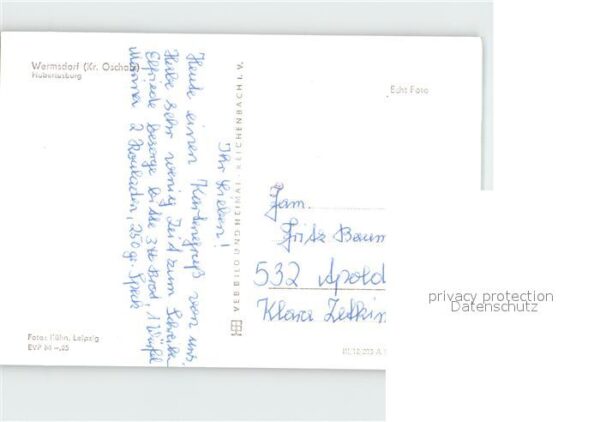 Wermsdorf (Kr. Oschatz)
Hubertusburg
Ihr Lieben!
Heute einen Kartengruß von uns.
Habe sehr wenig Zeit zum Schreiben
Elfriede besorge bitte 3tt Brot, 1 Würfel
2 Rouladen, 250 gr. Speck
VEB BILD UND HEIMAT · REICHENBACH I. V.
Echt Foto
Fam.
Fritz Baum
532 Apold
Klara Zetkin
Foto: Kühn, Leipzig
EVP M –,25
privacy protection
Datenschutz